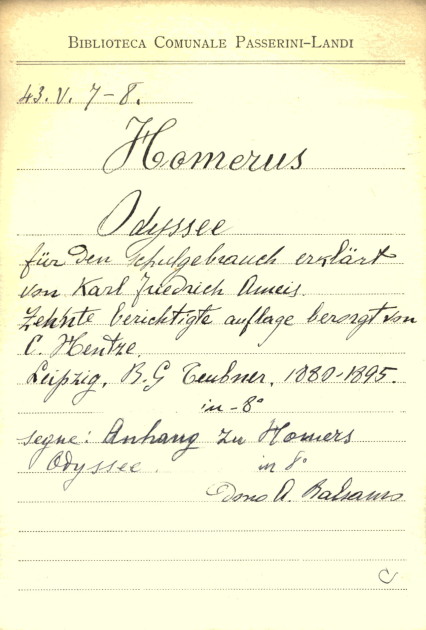 BIBLIOTECA COMUNALE PASSERINI-LANDI
43. V. 7-8.
Homerus
Odyssee
für den Schulgebrauch erklärt
von Karl Friedrich Ameis.
Zehnte berichtigte auflage besorgt von
C. Hentze.
Leipzig, B. G Teubner, 1880-1895.
in-8°
segue: Anhang zu Homers
Odyssee. in 8°
Dono A. Balsamo